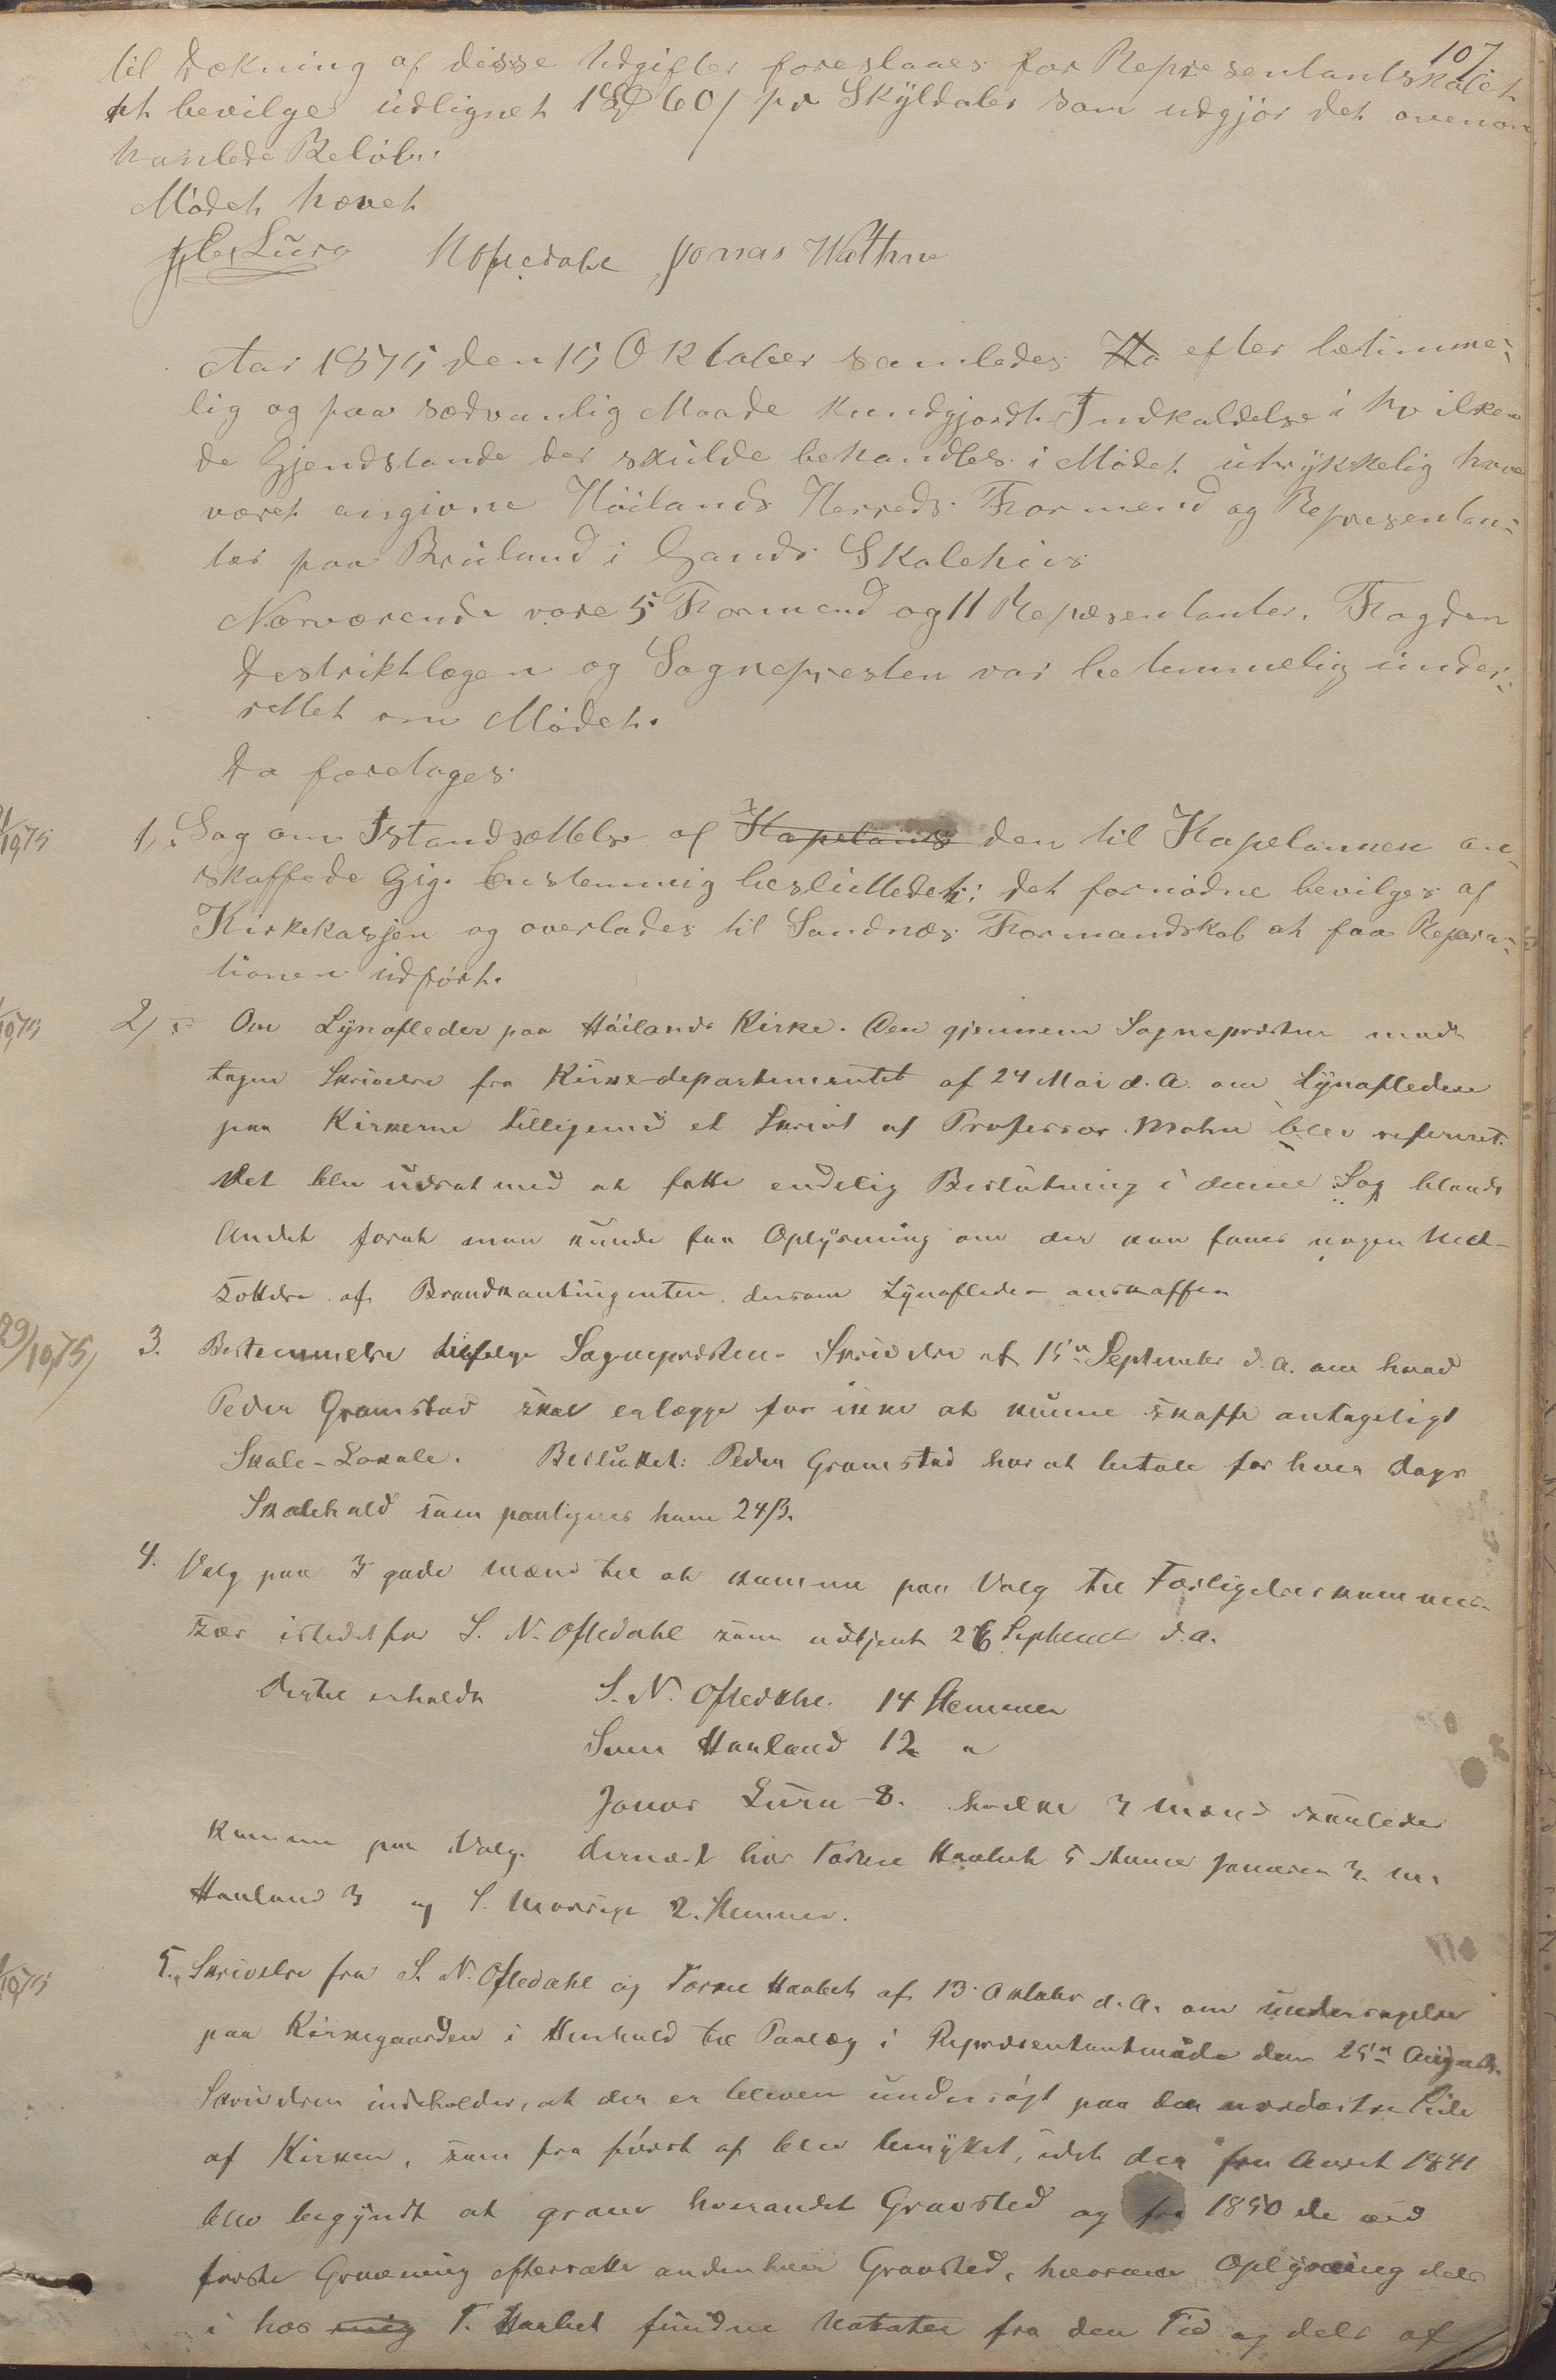 107
til Dækning af disse Udgifter foreslaaes for Representantskabet
at bevilge udlignet 1 Spd 60 / pr Skyldaler som udgjør det ovenom
hanlede Beløb..
Mødet hævet
Lura Oftedahl Jonas Wathne
Aar 1875 den 15 Oktober samledes efter betimme-
lig og paa sædvanlig Maade kundgjordt Indkaldelse i hvilken
de Gjendstande der skulde behandles i Mødet utrykkelig have
været angivne Høilands Herreds Formend og Representan-
ter paa Brueland i Gands Skolehus
Nærværende vare 5 Formend og 11 Repæsentanter. Fogden
Destriktlægen og Sognepresten var betimmelig under-
rettet om Mødet.
Da foretages
1, Sag om Istandsættelse af Kapelanes den til Kapelannen an-
skaffede Gig. Enstemmig besluttedet: det fornødne bevilges af
Kirkekassen og overlades til Sandnæs Formandskab at faa Repera-
tionen udført.
2, Om Lynafleder paa Høilands Kirke. Den gjennem Sognepresten mod-
tagne Skrivelse fra Kirkedepartementet af 24 Mai d. A. om Lynafledere
paa Kirkerne tilligemed et Skrivt af Professor Mohn blev refereret.
Det blev udsat med at fatte endelig Beslutning i denne Sag blandt
Andet forat man kunde faa Oplysning om der kan faaes nogen Ned-
settelse af Brandkontingenten dersom Lynafleder anskaffes
29/10 75
3. Bestemmelse tilfølge Sognepresten Skrivelse af 15de September d. A. om hvad
Peder Gramstad skal erlægge for ikke at kunne skaffe antageligt
Skole-Lokale. Besluttet: Peder Gramstad har at betale for hver Dags
Skolehold som paalignes ham 24 ß.
4. Valg paa 3 gode Mænd til at komme paa Valg til Forligelseskommis-
sær istedetfor S. N. Oftedahl som udtjent 26 September d. a.
Dertil erholdt S. N. Oftedahl. 14 Stemmer
Sven Hanland 12 "
Jonas Lura 8. hvilke 3 Mænd saaledes
komme paa Valg. Dernæst har Torkel Haabet 5 Stemmer 3.
Hanland 3 og S. 2. Stemmer.
5. Skrivelse fra S. N. Oftedahl og Torkel Haabet af 13 Oktober d. A. om undersøgelse
paa Kirkegaarden i Henhold til Paalæg i Repræsentantmøde den 25de August.
Skrivelsen indeholder, at der er bleven undersøgt paa den nordøstre Side
af Kirken, som fra først af blev benyttet, idet der fra Aaret 1841
blev begyndt at grave hverandet Gravsted og fra 1850 de ved
første Gravning eftersatte andenhver Gravsted, hvorom Oplysning dels
i hos mig T. Haabet fundne Notater fra den Tid og dels af